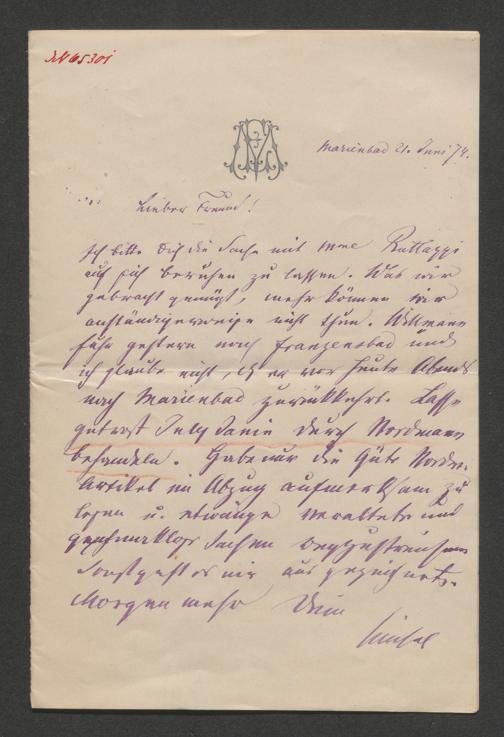 JN 65301
Marienbad 21. Juni 74.
Lieber Freund!
Ich bitte Dich die Sache mit Mme Rattazzi
auf sich beruhen zu lassen. Was wir
gebracht genügt, mehr können wir
anständigerweise nicht thun. Wittmann
fuhr gestern nach Franzensbad und
ich glaube nicht, daß er vor heute Abends
nach Marienbad zurückkehrt. Lasse
getrost July Janin durch Nordmann
behandeln. Habe nur die Güte Nordm.
Artikel im Abzug aufmerksam zu
lesen u. etwaige veraltete und
geschmacklose Sachen wegzustreichen
Sonst geht es mir ausgezeichnet.
Morgen mehr Dein